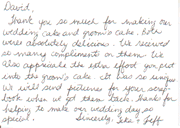 David,
Thank you so much for making our
wedding cake and groom's cake. Both
were absolutely delicious. We received
so many compliments on them. We
also appreciate the extra effort you put
into the groom's cake. It was so unique
We will send pictures for your scrap
book when we get them back. Thanks for
helping to make our wedding day so
special. Sincerely, & Jeff